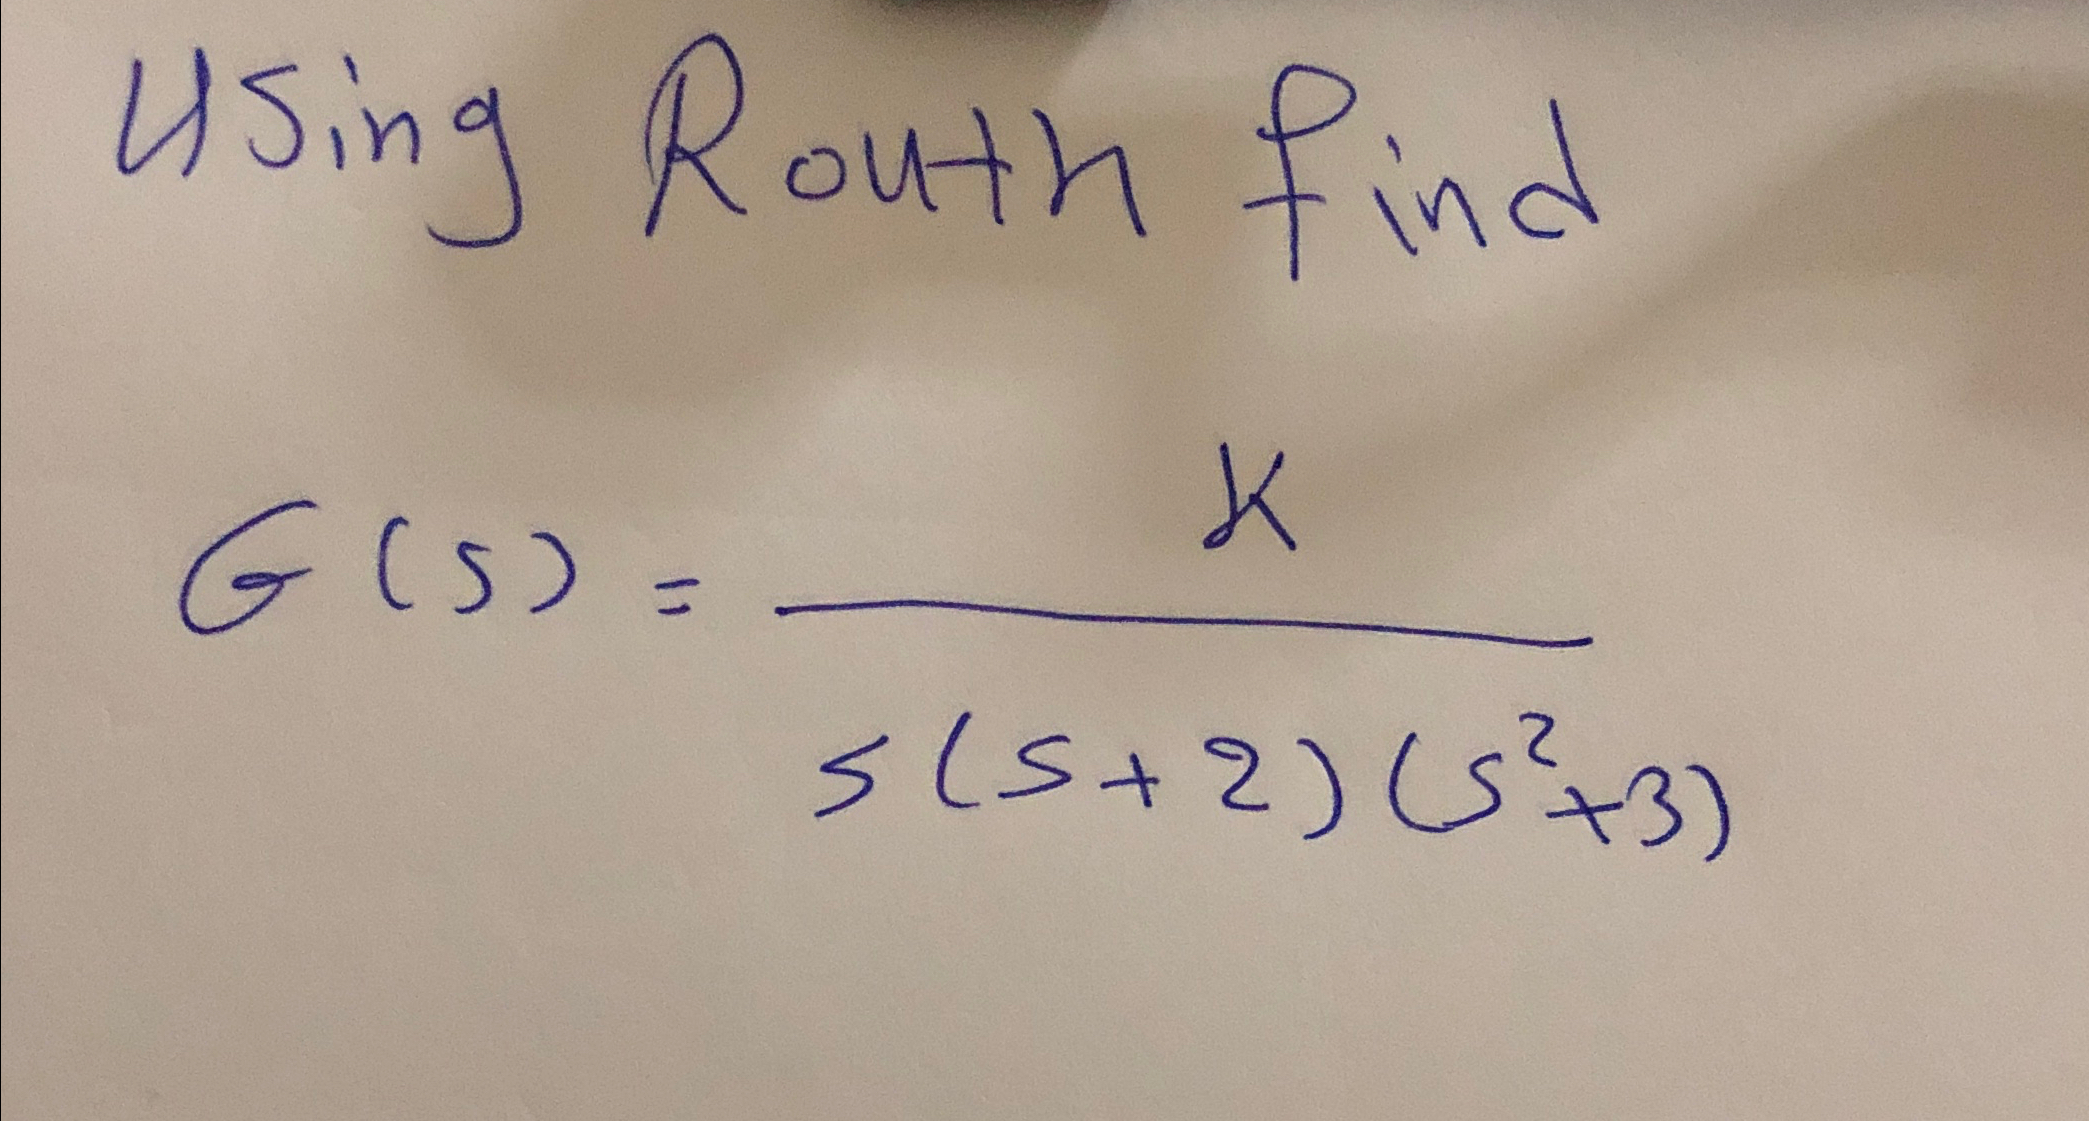 Using Routh find
K
G(s) = ―
s(s+2)(s²+3)